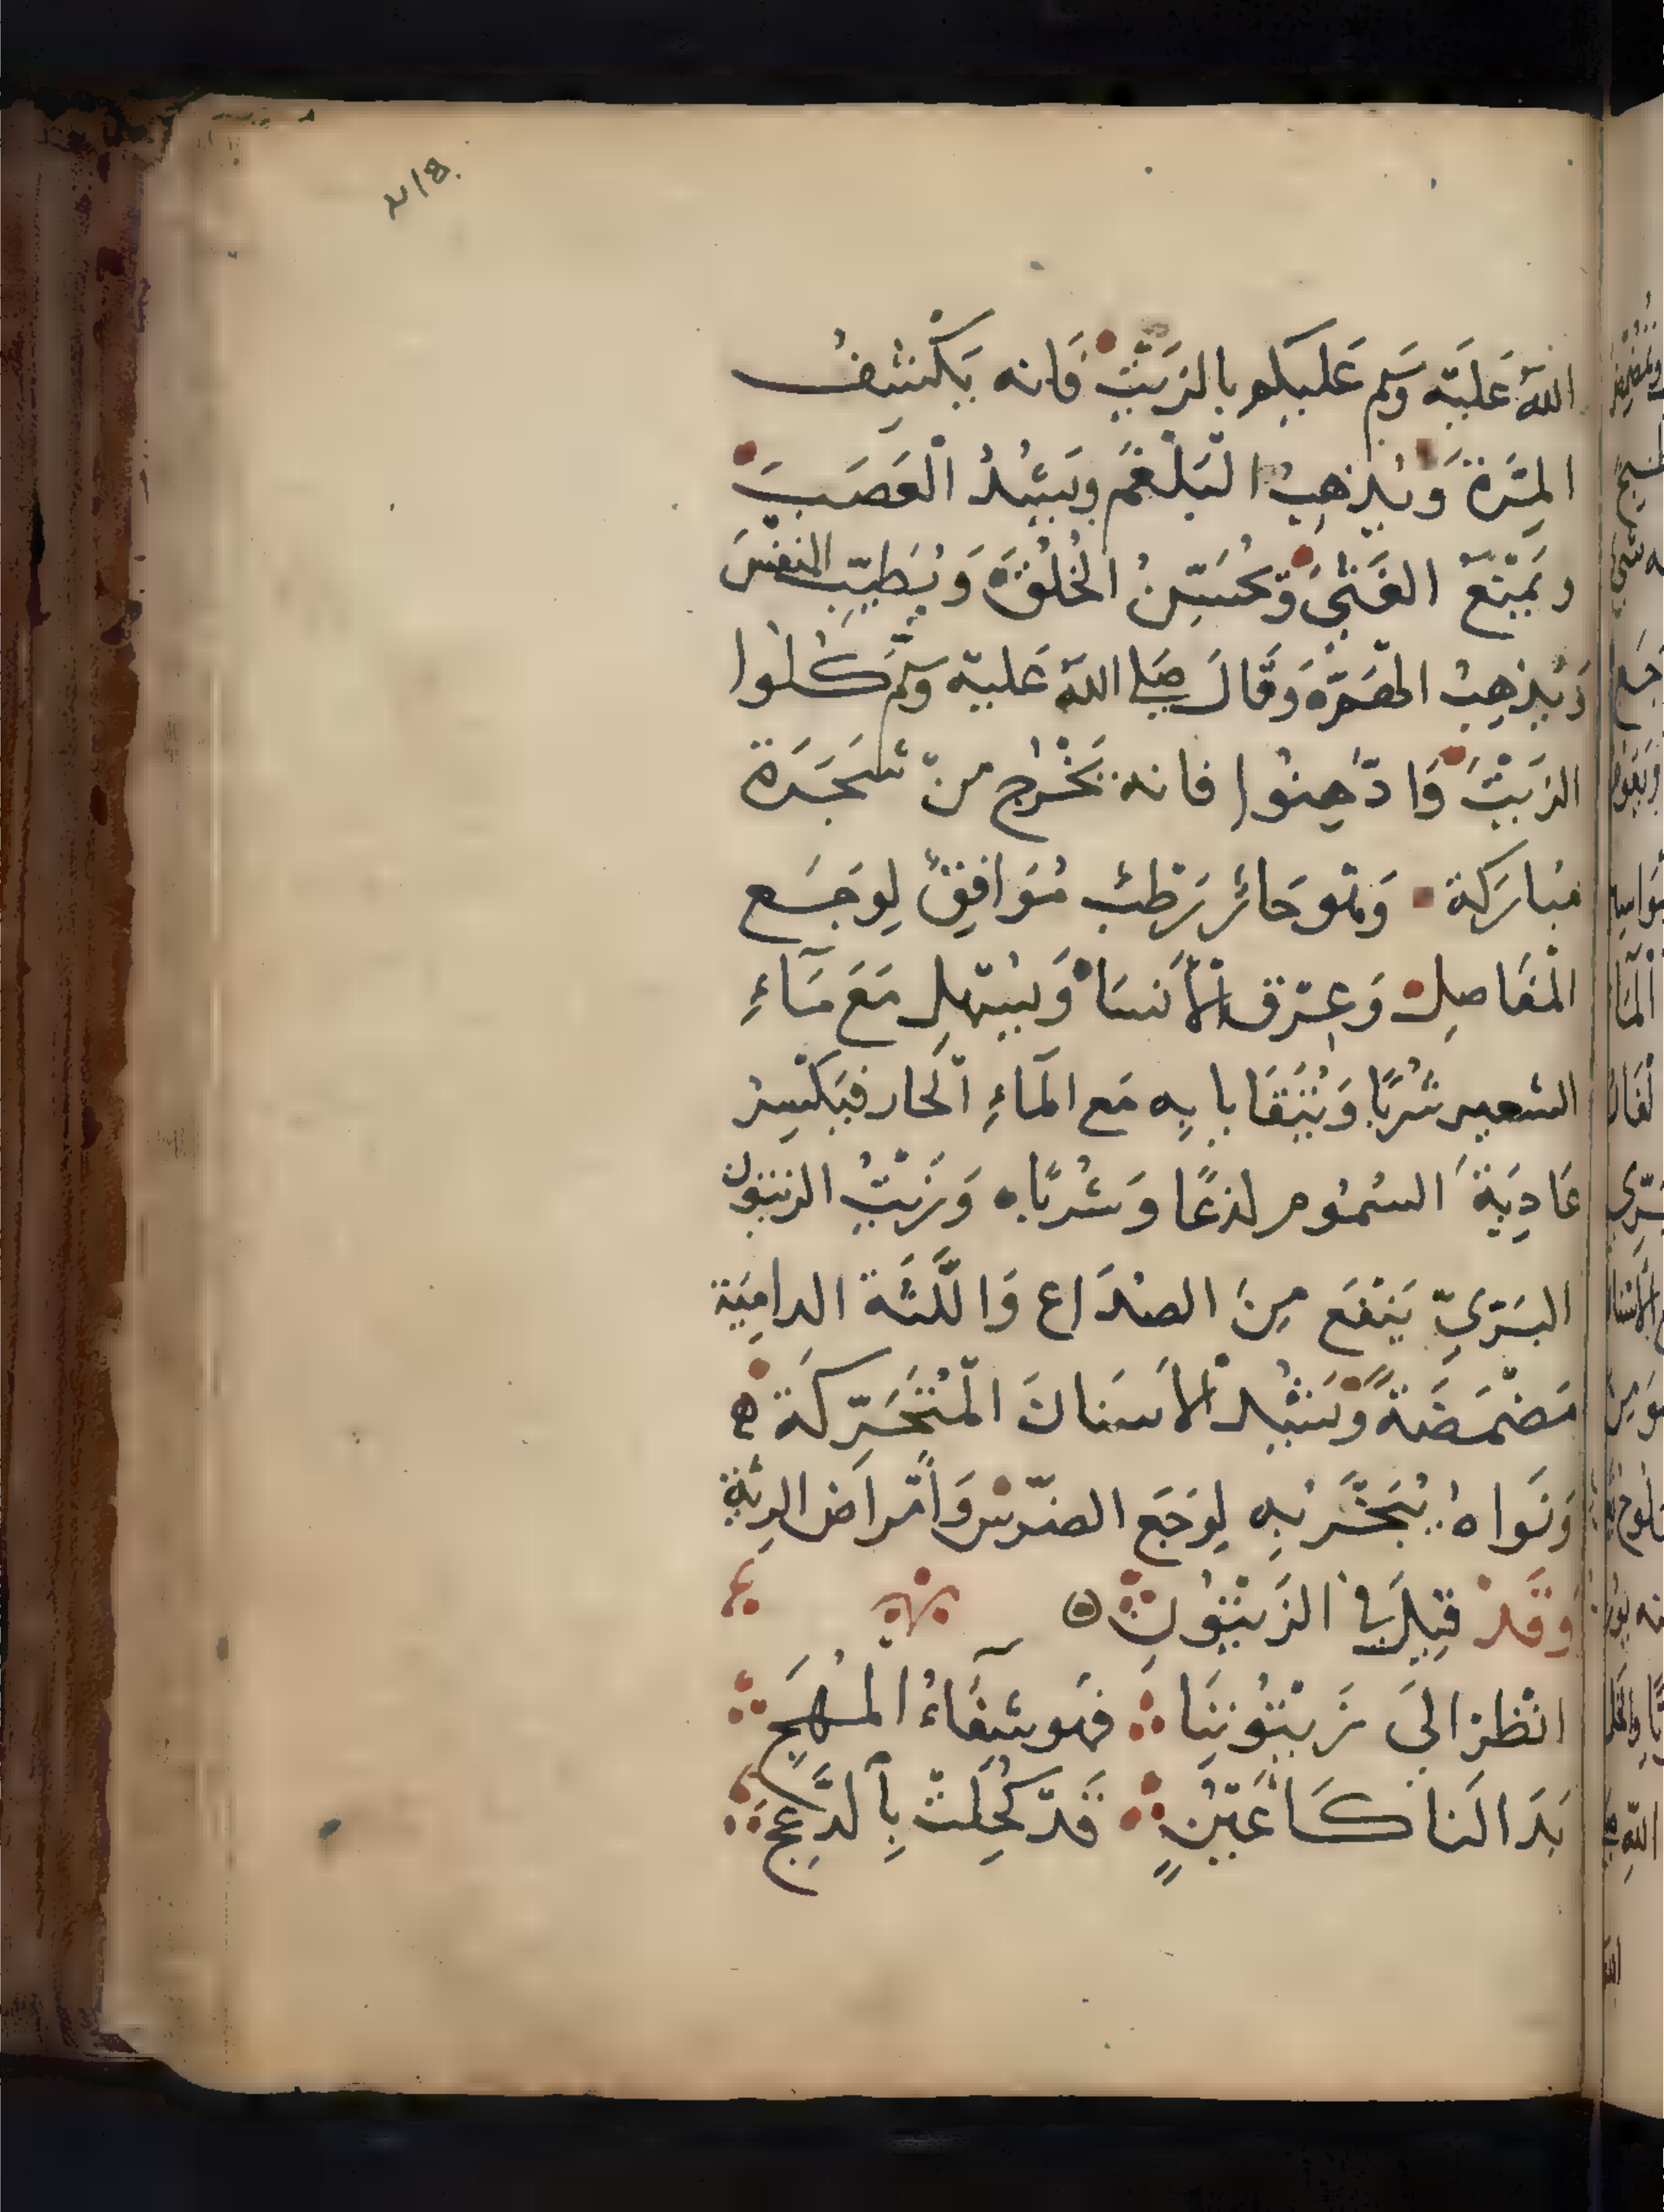 الله عَلَيْه وَسَلم عَلَيكم بالزَيْتِ فَانه يَكْشِفُ
المِرَّة وَيُذهِبُ الْبَلْغَمَ وَيَشُدُ الْعَصَبَ
وَيَمْنَعُ الغَشْيَ وَيُحَسِّنُ الخُلُقَ وَيُطَيِّبُ النَفْسَ
وَيُذهِبُ الهَمَّ وَقَالَ صَلى الله عَليْه وَسَلم كُلُوا
الزَيْتَ وَادَّهِنُوا فانه يَخْرُج منْ شَجَرَة
مُبارَكة وَهُو حَارٌ رَطْبٌ مُوَافِقٌ لِوَجَع
الْمَفَاصِل وَعِرْق الأَنسَا وَيُسْهل مَعَ مَاءِ
الشعير شُرْبًا وَيُتَقَايا بِهِ مَع المَاءِ الْحار فيَكْسِرُ
عَادِيَةَ السُمُوم لذعًا وَشُرْبًا ه وَزَيْتُ الزيتون
البَرّىِّ يَنْفَع مِنَ الصُدَاع وَاللَّثَة الدامِيَة
مَضْمَضَةً وَيَشُد الأَسنانَ الْمُتَحَرِّكَة ه
وَنَواهُ يُبَخَّر بِهِ لِوَجَع الضرْس وَأَمْراض الرِئَة
وَقَدْ قِيلَ فِى الزَيْتُونِ ه
انْظر الىَ زَيْتُونِنَا فهُو شِفَاءُ الْمُهَجِ
بَدَا لَنا كَأَعْيُنٍ قَدْ كُحِلَتْ بِالدَّعَجِ